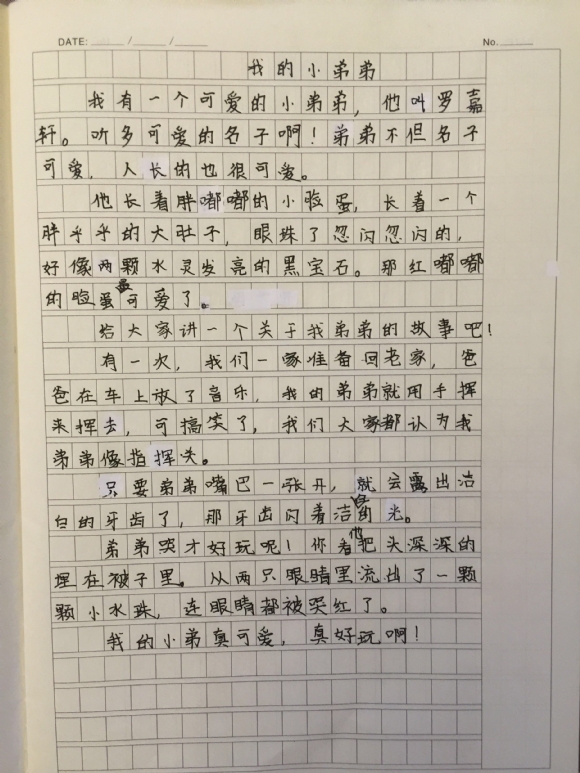 DATE: / /
No.
我的小弟弟
我有一个可爱的小弟弟，他叫罗嘉
轩。听多可爱的名子啊！弟弟不但名子
可爱，人长的也很可爱。
他长着胖嘟嘟的小脸蛋，长着一个
胖乎乎的大肚子，眼珠了忽闪忽闪的，
好像两颗水灵发亮的黑宝石。那红嘟嘟
的脸蛋最可爱了。
给大家讲一个关于我弟弟的故事吧！
有一次，我们一家准备回老家，爸
爸在车上放了音乐，我的弟弟就用手挥
来挥去，可搞笑了，我们大家都认为我
弟弟像指挥夫。
只要弟弟嘴巴一张开，就会露出洁
白的牙齿了，那牙齿闪着洁白的光。
弟弟哭才好玩呢！你看他把头深深的
埋在被子里。从两只眼睛里流出了一颗
颗小水珠，连眼睛都被哭红了。
我的小弟真可爱，真好玩啊！